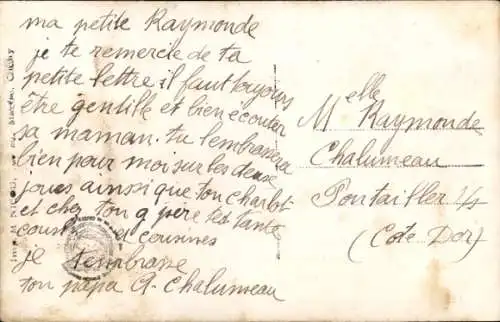 ma petite Raymonde
je te remercie de ta
petite lettre il faut toujours
être gentille et bien écouter
sa maman. tu lembrassera
bien pour moi sur les deuse
joues ainsi que ton charlot
et chez ton g père tes tante
cousins et cousines
je tembrasse
ton papa A. Chalumeau
Melle Raymonde
Chalumeau
Pontailler s/s
(Cote Dor)